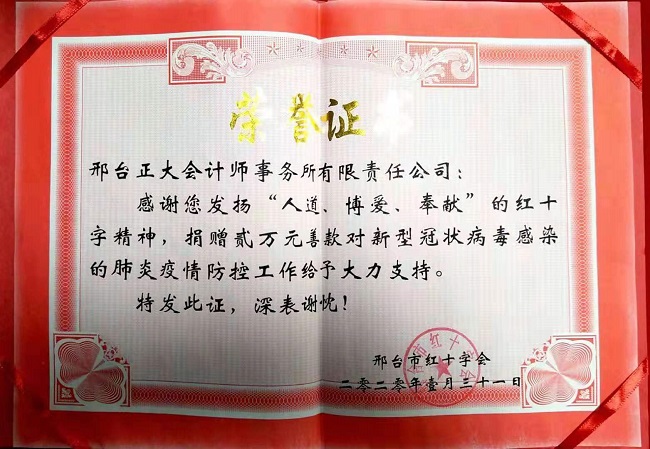 荣誉证书
邢台正大会计师事务所有限责任公司：
感谢您发扬“人道、博爱、奉献”的红十
字精神，捐赠贰万元善款对新型冠状病毒感染
的肺炎疫情防控工作给予大力支持。
特发此证，深表谢忱！
邢台市红十字会
二零二零年壹月三十一日